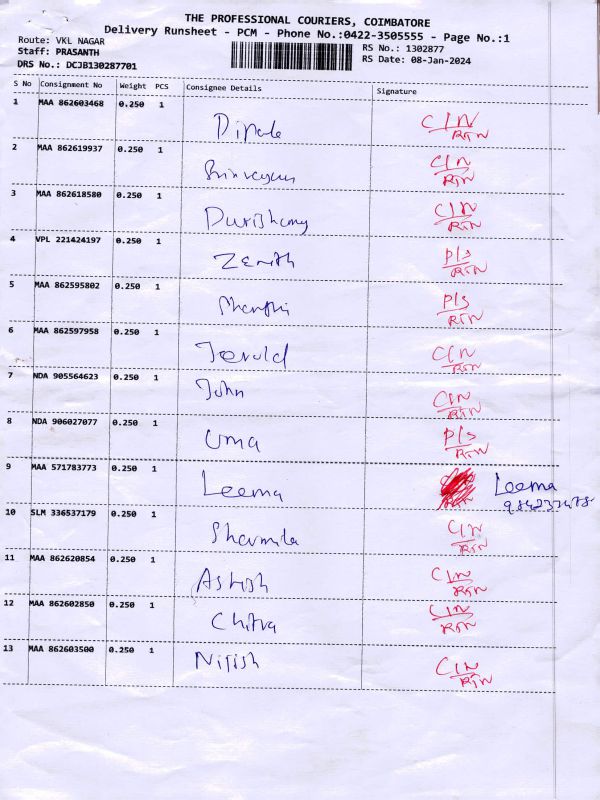 THE PROFESSIONAL COURIERS, COIMBATORE
Delivery Runsheet - PCM - Phone No.:0422-3505555 - Page No.:1
Route: VKL NAGAR RS No.: 1302877
Staff: PRASANTH RS Date: 08-Jan-2024
DRS No.: DCJB130287701
S No Consignment No Weight PCS Consignee Details Signature
1 MAA 862603468 0.250 1 C/N
RTN
2 MAA 862619937 0.250 1 C/N
RTN
3 MAA 862618580 0.250 1 C/N
RTN
4 VPL 221424197 0.250 1 Zenith P/S
RTN
5 MAA 862595802 0.250 1 P/S
RTN
6 MAA 862597958 0.250 1 Jerold C/N
RTN
7 NDA 905564623 0.250 1 John C/N
RTN
8 NDA 906027077 0.250 1 Uma P/S
RTN
9 MAA 571783773 0.250 1 Leema Leema
10 SLM 336537179 0.250 1 Sharmila C/N
RTN
11 MAA 862620854 0.250 1 Ashish C/N
RTN
12 MAA 862602850 0.250 1 Chitra C/N
RTN
13 MAA 862603500 0.250 1 Nitish C/N
RTN